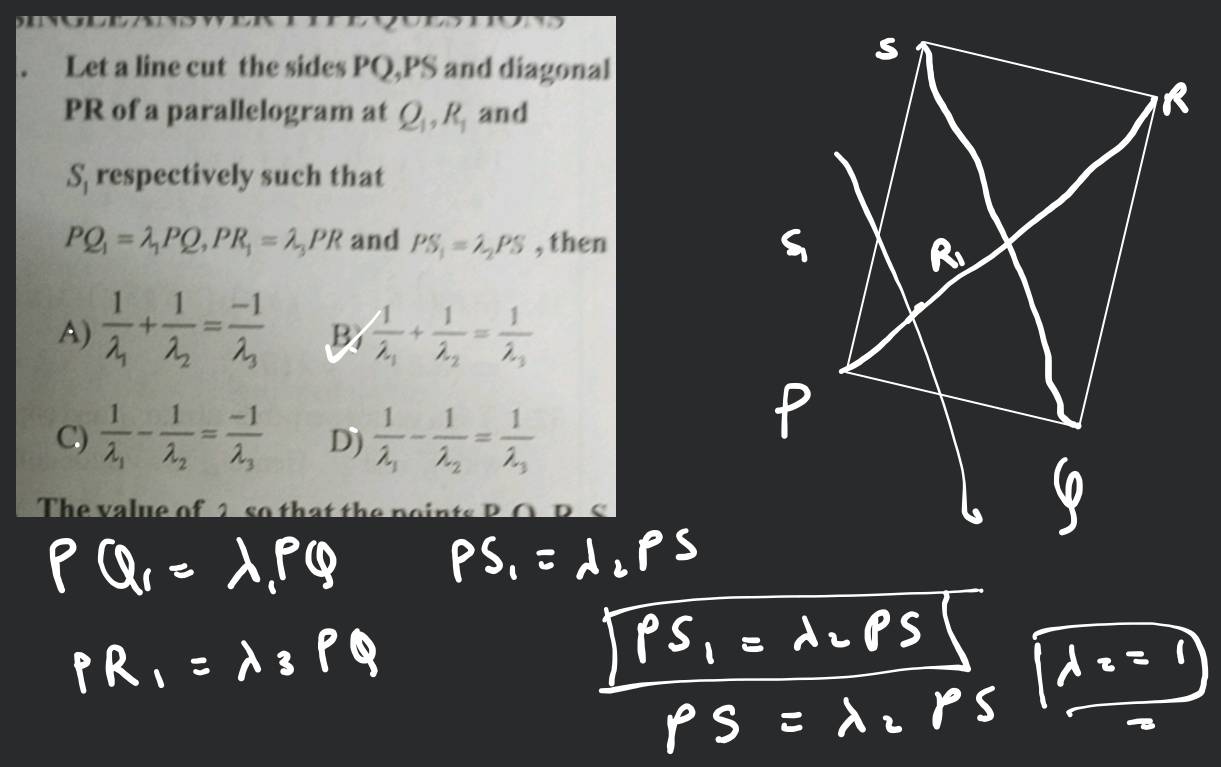 SINGLE ANSWER TYPE QUESTIONS
. Let a line cut the sides PQ,PS and diagonal
PR of a parallelogram at Q₁, R₁ and
S₁ respectively such that
PQ₁ = λ₁PQ, PR₁ = λ₃PR and PS₁ = λ₂PS , then
A) 1/λ₁ + 1/λ₂ = -1/λ₃ B) 1/λ₁ + 1/λ₂ = 1/λ₃
C) 1/λ₁ - 1/λ₂ = -1/λ₃ D) 1/λ₁ - 1/λ₂ = 1/λ₃
The value of λ so that the points P, Q, R, S
S
R
S₁
R₁
P
Q
PQ₁ = λ₁PQ PS₁ = λ₂PS
PR₁ = λ3PQ
PS₁ = λ₂PS
λ₂ = 1
PS = λ₂ PS